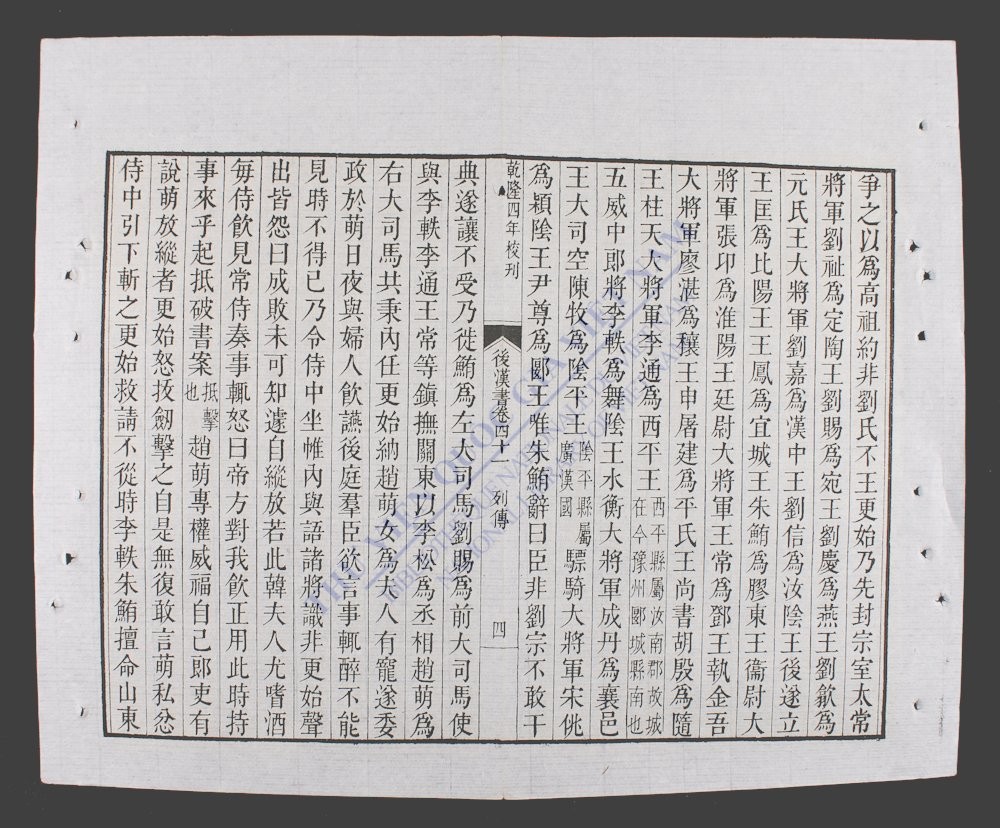 爭之以爲高祖約非劉氏不王更始乃先封宗室太常
將軍劉祉爲定陶王劉賜爲宛王劉慶爲燕王劉歙爲
元氏王大將軍劉嘉爲漢中王劉信爲汝陰王後遂立
王匡爲比陽王王鳳爲宜城王朱鮪爲膠東王衞尉大
將軍張卬爲淮陽王廷尉大將軍王常爲鄧王執金吾
大將軍廖湛爲穰王申屠建爲平氏王尚書胡殷爲隨
王柱天大將軍李通爲西平王西平縣屬汝南郡故城在今豫州郾城縣南也
五威中郎將李軼爲舞陰王水衡大將軍成丹爲襄邑
王大司空陳牧爲陰平王陰平縣屬廣漢國驃騎大將軍宋佻
爲潁陰王尹尊爲郾王唯朱鮪辭曰臣非劉宗不敢干
乾隆四年校刊
後漢書卷四十一
列傳
四
典遂讓不受乃徙鮪爲左大司馬劉賜爲前大司馬使
與李軼李通王常等鎮撫關東以李松爲丞相趙萌爲
右大司馬共秉內任更始納趙萌女爲夫人有寵遂委
政於萌日夜與婦人飲讌後庭羣臣欲言事輒醉不能
見時不得已乃令侍中坐帷內與語諸將識非更始聲
出皆怨曰成敗未可知遽自縱放若此韓夫人尤嗜酒
每侍飲見常侍奏事輒怒曰帝方對我飲正用此時持
事來乎起抵破書案抵擊也趙萌專權威福自己郎吏有
說萌放縱者更始怒拔劒擊之自是無復敢言萌私忿
侍中引下斬之更始救請不從時李軼朱鮪擅命山東
THU VIEN QUOC GIA VIET NAM
BIBLIOTHEQUE NATIONALE DU VIETNAM
NATIONAL LIBRARY OF VIETNAM